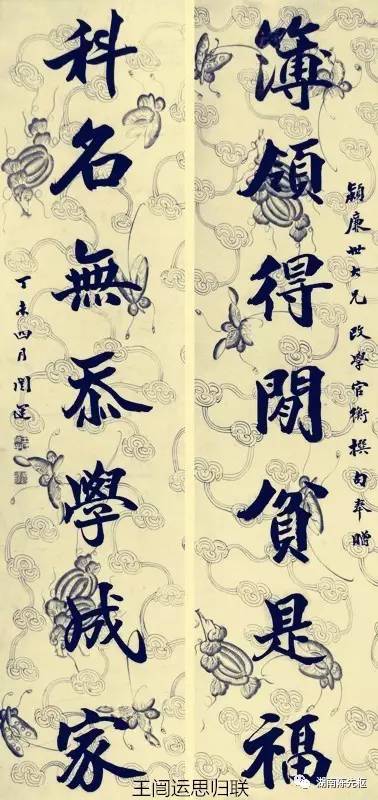 穎廉世大兄改學官銜撰句奉贈
簿領得閒貧是福
科名無忝學成家
丁未四月闓運
王闿运思归联
湖南陈先枢